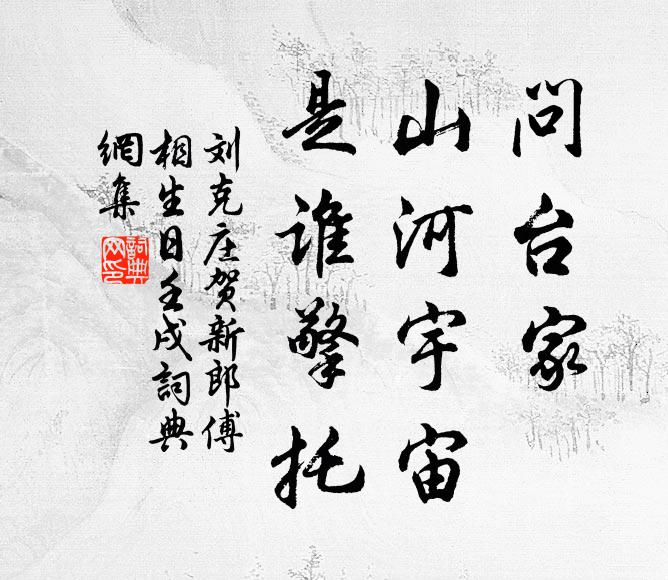 问台家
山河宇宙
是谁擎托
刘克庄贺新郎傅
相生日壬戌詞典
網集
詞典
网印